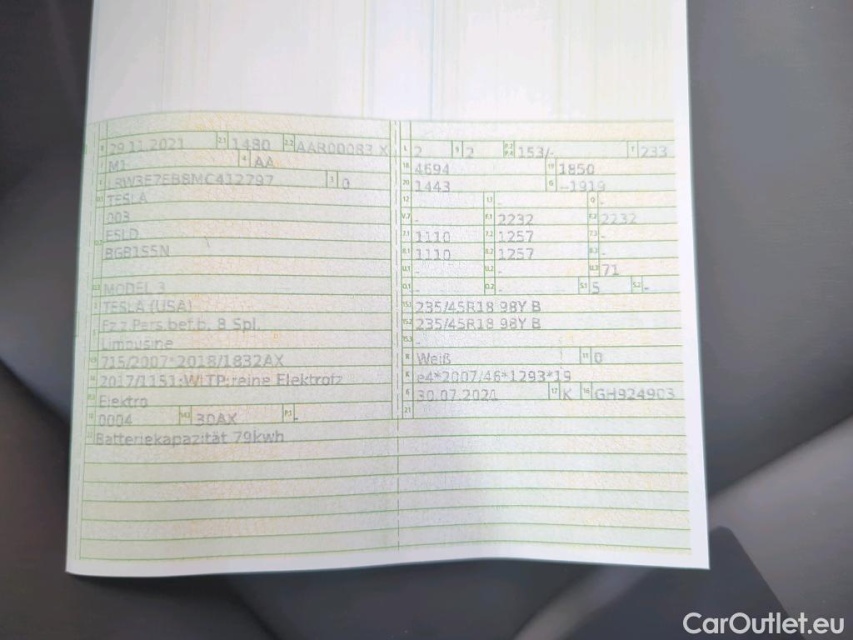 29.11.2021 1480 AAR00083 X
M1 AA
LRW3E7EB8MC412797 0
TESLA
003
E5LD
BGB1S5N
MODEL 3
TESLA (USA)
Fz.z.Pers.bef.b. 8 Spl.
Limousine
715/2007*2018/1832AX
2017/1151;WLTP;reine Elektrofz
Elektro
0004 30AX -
Batteriekapazität 79kwh
2 2 153/- 233
4694 1850
1443 --1919
- - -
- 2232 2232
1110 1257 -
1110 1257 -
- - 71
- - 5 -
235/45R18 98Y B
235/45R18 98Y B
-
Weiß 0
e4*2007/46*1293*19
30.07.2020 K GH924903
CarOutlet.eu